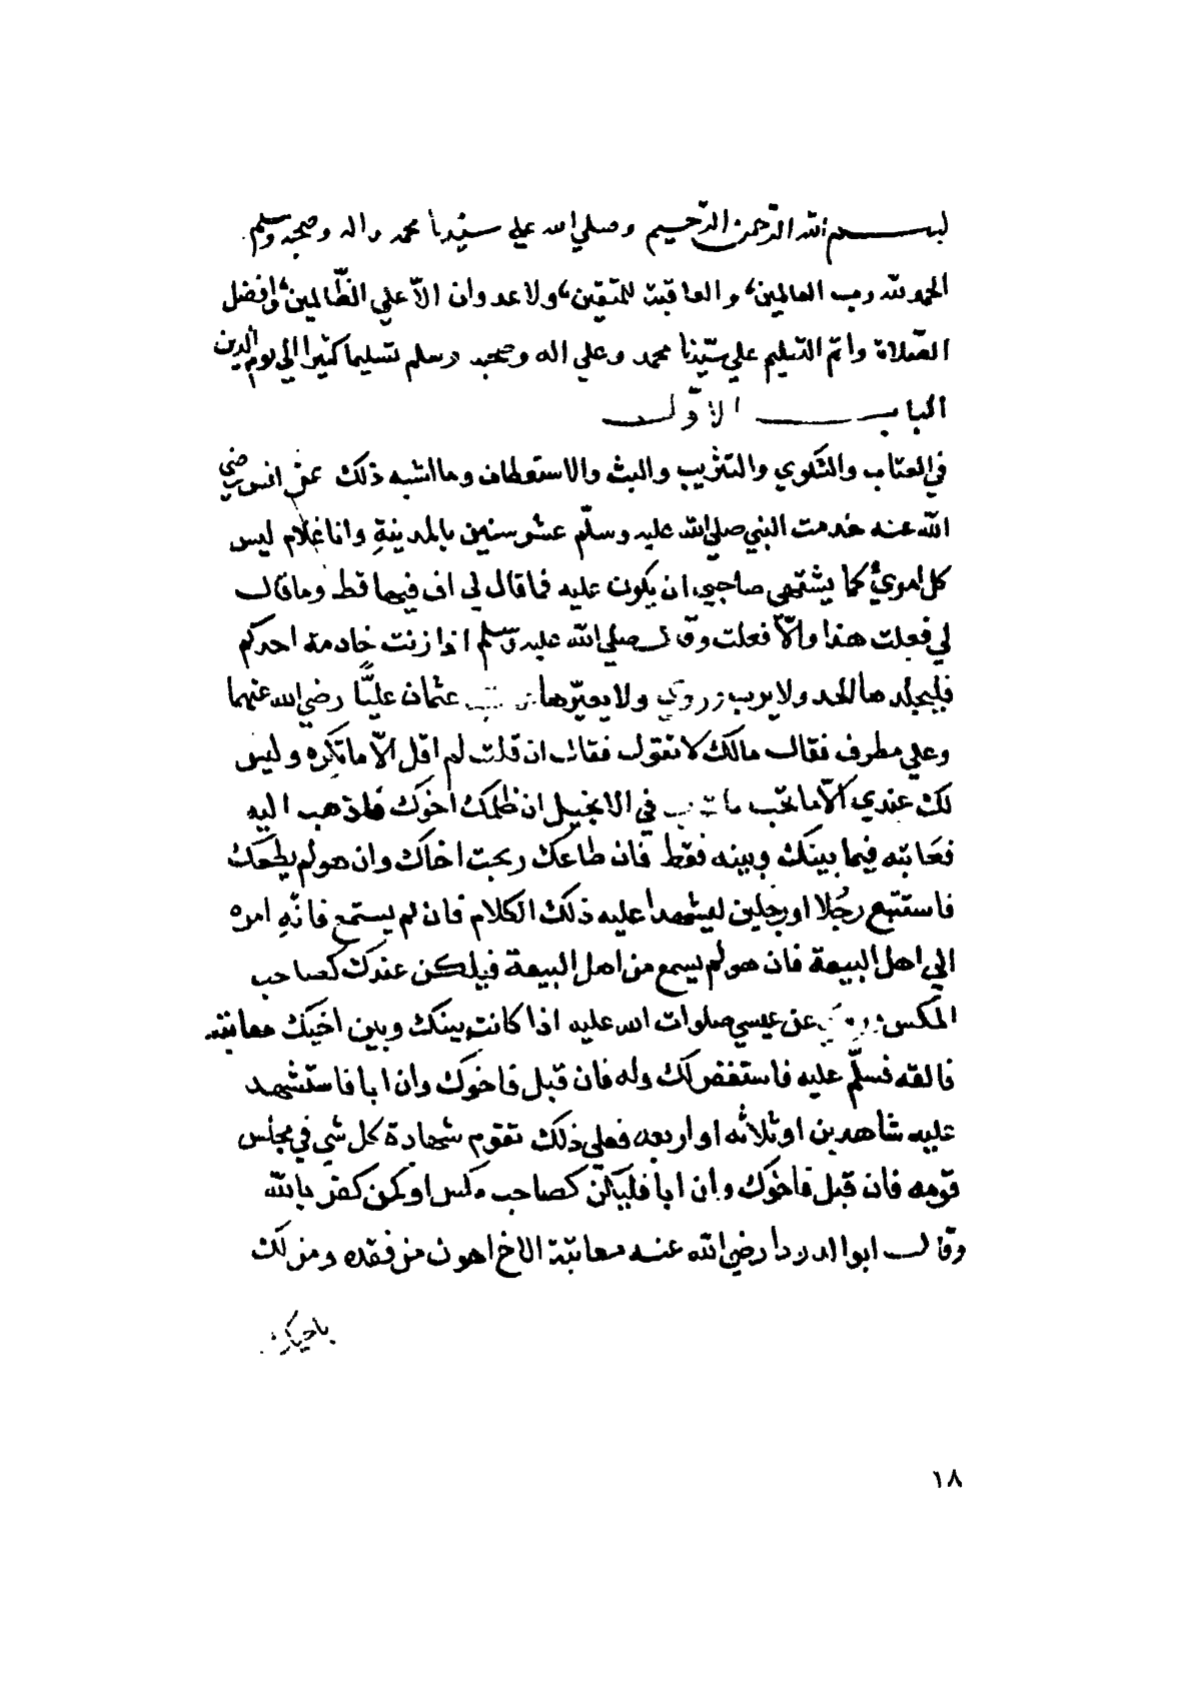 بسم الله الرحمن الرحيم وصلي الله علي سيدنا محمد واله وصحبه وسلم
الحمد لله رب العالمين، والعاقبة للمتقين، ولا عدوان الاّ علي الظّالمين، وافضل
الصّلاة واتمّ التسليم علي سيّدنا محمد وعلي اله وصحبه وسلم تسليما كثيرا الي يوم الدين
الباب الاوّل
في العتاب والشكوي والتثريب والبث والاستعطاف وما اشبه ذلك عن انس رضي
الله عنه خدمت النبي صلي الله عليه وسلّم عشر سنين بالمدينةِ وانا غلام ليس
كل امريٍ كما يشتهي صاحبي ان يكون عليه فما قال لي اف فيها قط وما قال
لي فعلت هذا والاّ فعلت وقال صلي الله عليه وسلم اذا زنت خادمة احدكم
فليجلدها الحد ولا يرب وروي ولا يعيّرها عثمان عليًّا رضي الله عنهما
وعلي مطرف فقال مالك لا تقول فقال ان قلت لم اقل الاّ ما تكره وليس
لك عندي الاّ ما تحب في الانجيل ان ظلمك اخوك فاذهب اليه
فعَاتبه فيما بينك وبينه فقط فان طاعك ربحت اخاك وان هو لم يطعك
فاستتبع رجُلا او رجلين ليشهدا عليه ذلك الكلام فان لم يستمع فانهِ امره
الي اهل البيعة فان هو لم يسمع من اهل البيعة فيلكن عندك كصاحب
المكس عن عيسي صلوات الله عليه اذا كانت بينك وبين اخيك معاتبته
فالقه فسلّم عليه فاستغفر لك وله فان قبل فاخوك وان ابا فاستشهد
عليه شاهدين او ثلاثه او اربعه فعلي ذلك تقوم شهادة كل شي في مجلس
قومه فان قبل فاخوك وان ابا فليكن كصاحب مكس او كمن كفر بالله
وقال ابو الدردا رضي الله عنه معاتبة الاخ اهون من فقده ومن لك
باخيك
١٨